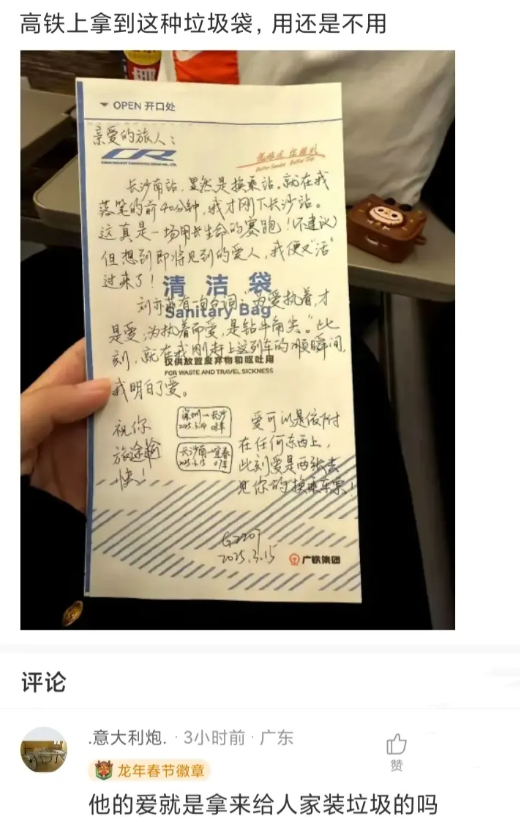 高铁上拿到这种垃圾袋，用还是不用
OPEN 开口处
亲爱的旅人：
CR
长沙南站，显然是换乘站。就在我
落笔的前40分钟，我才刚下长沙站。
这真是一场用生命的赛跑！（不建议）
但想到即将见到的爱人，我便又“活”
过来了！
清洁袋
Sanitary Bag
为爱执着，才
是爱，为执着而爱，是钻牛角尖。”此
刻，就在我刚赶上这列车的瞬间，
仅供放置废弃物和呕吐用
FOR WASTE AND TRAVEL SICKNESS
我明白了爱。
祝你
旅途愉
快！
深圳→长沙
长沙南→宜春
爱可以是依附
在任何东西上，
此刻爱是两张去
见你的换乘车票！
G2207
2025.3.15
广铁集团
评论
.意大利炮. · 3小时前 · 广东
赞
龙年春节徽章
他的爱就是拿来给人家装垃圾的吗